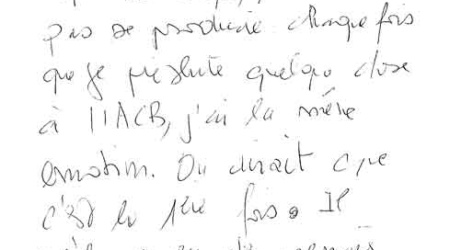 pas se produire chaque fois
que je présente quelque chose
à l'IACB, j'ai la même
émotion. On dirait que
c'est la 1ère fois. Il